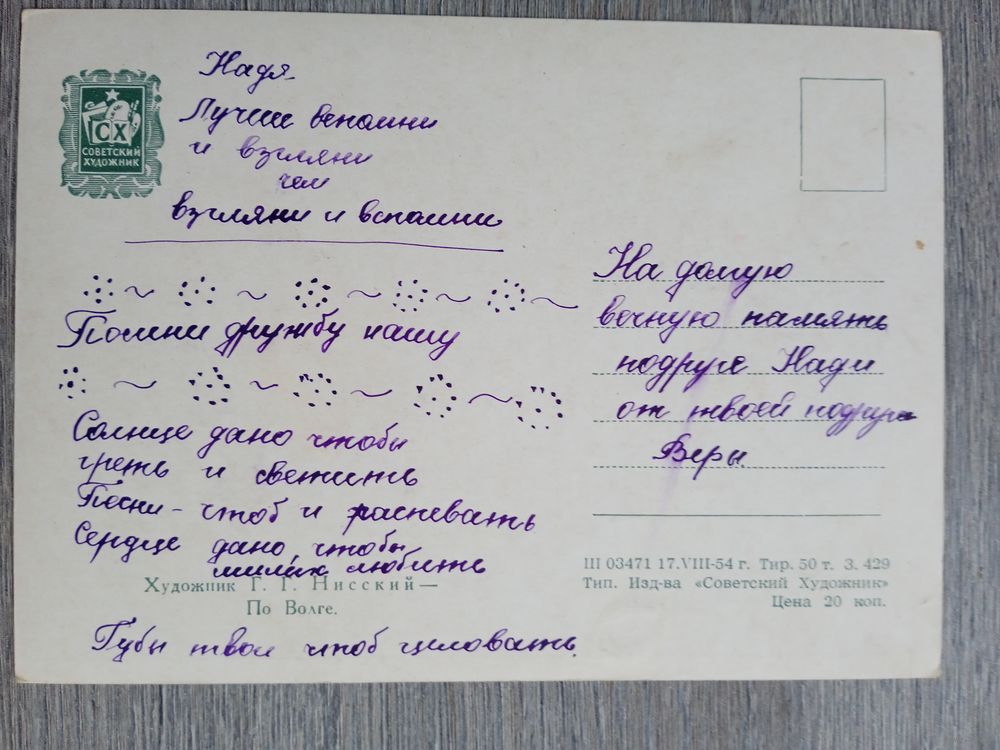 Надя
Лучше вспомни
и взгляни
чем
взгляни и вспомни
СХ
СОВЕТСКИЙ
ХУДОЖНИК
Помни дружбу нашу
Солнце дано чтобы
греть и светить
Песни - чтоб и распевать
Сердце дано, чтобы
милых любить
Художник Г. Г. Нисский —
По Волге.
Губы твои чтоб целовать.
На долгую
вечную память
подруге Нади
от твоей подруги
Веры.
III 03471 17.VIII-54 г. Тир. 50 т. З. 429
Тип. Изд-ва «Советский Художник»
Цена 20 коп.